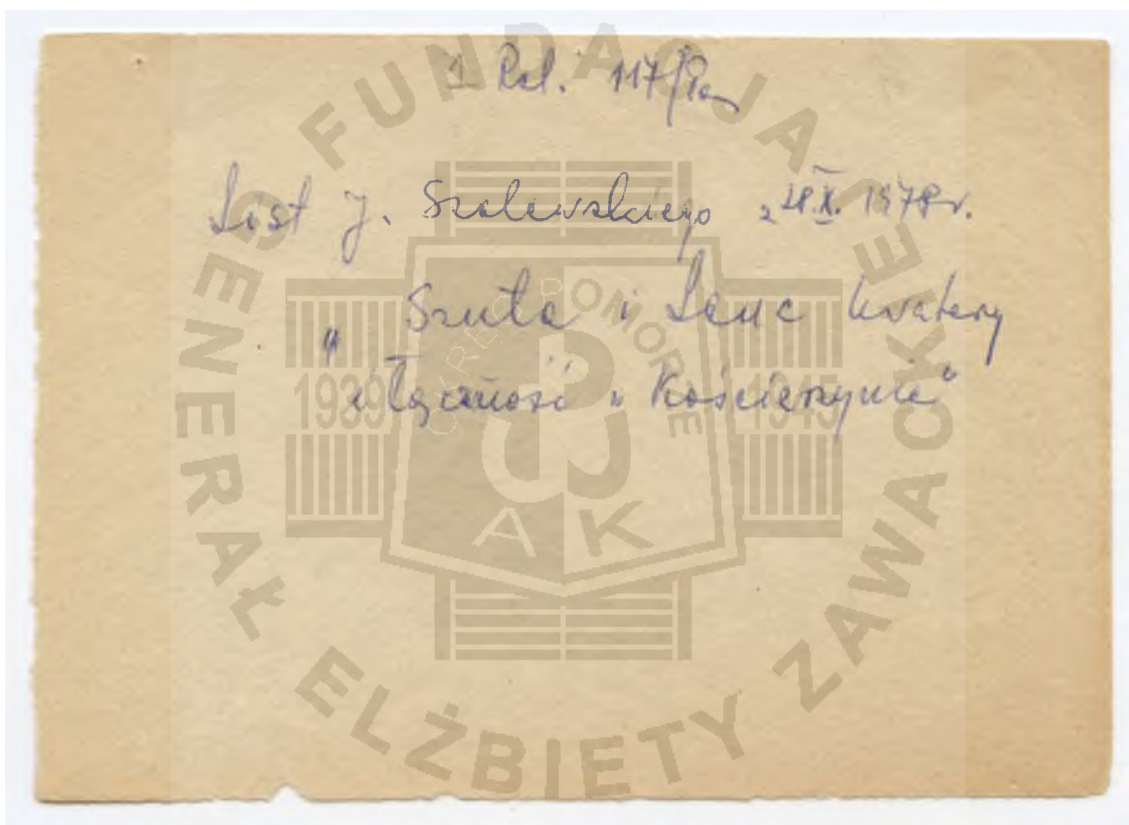 I Rel. 117/Pom
List J. Szalewskiego z 28.X. 1978 r.
„Szuta i Lanc kwatery
i łączność w Kościerzynie"
FUNDACJA GENERAŁ ELŻBIETY ZAWACKIEJ
OKRĘG POMORZE
1939 1945
AK